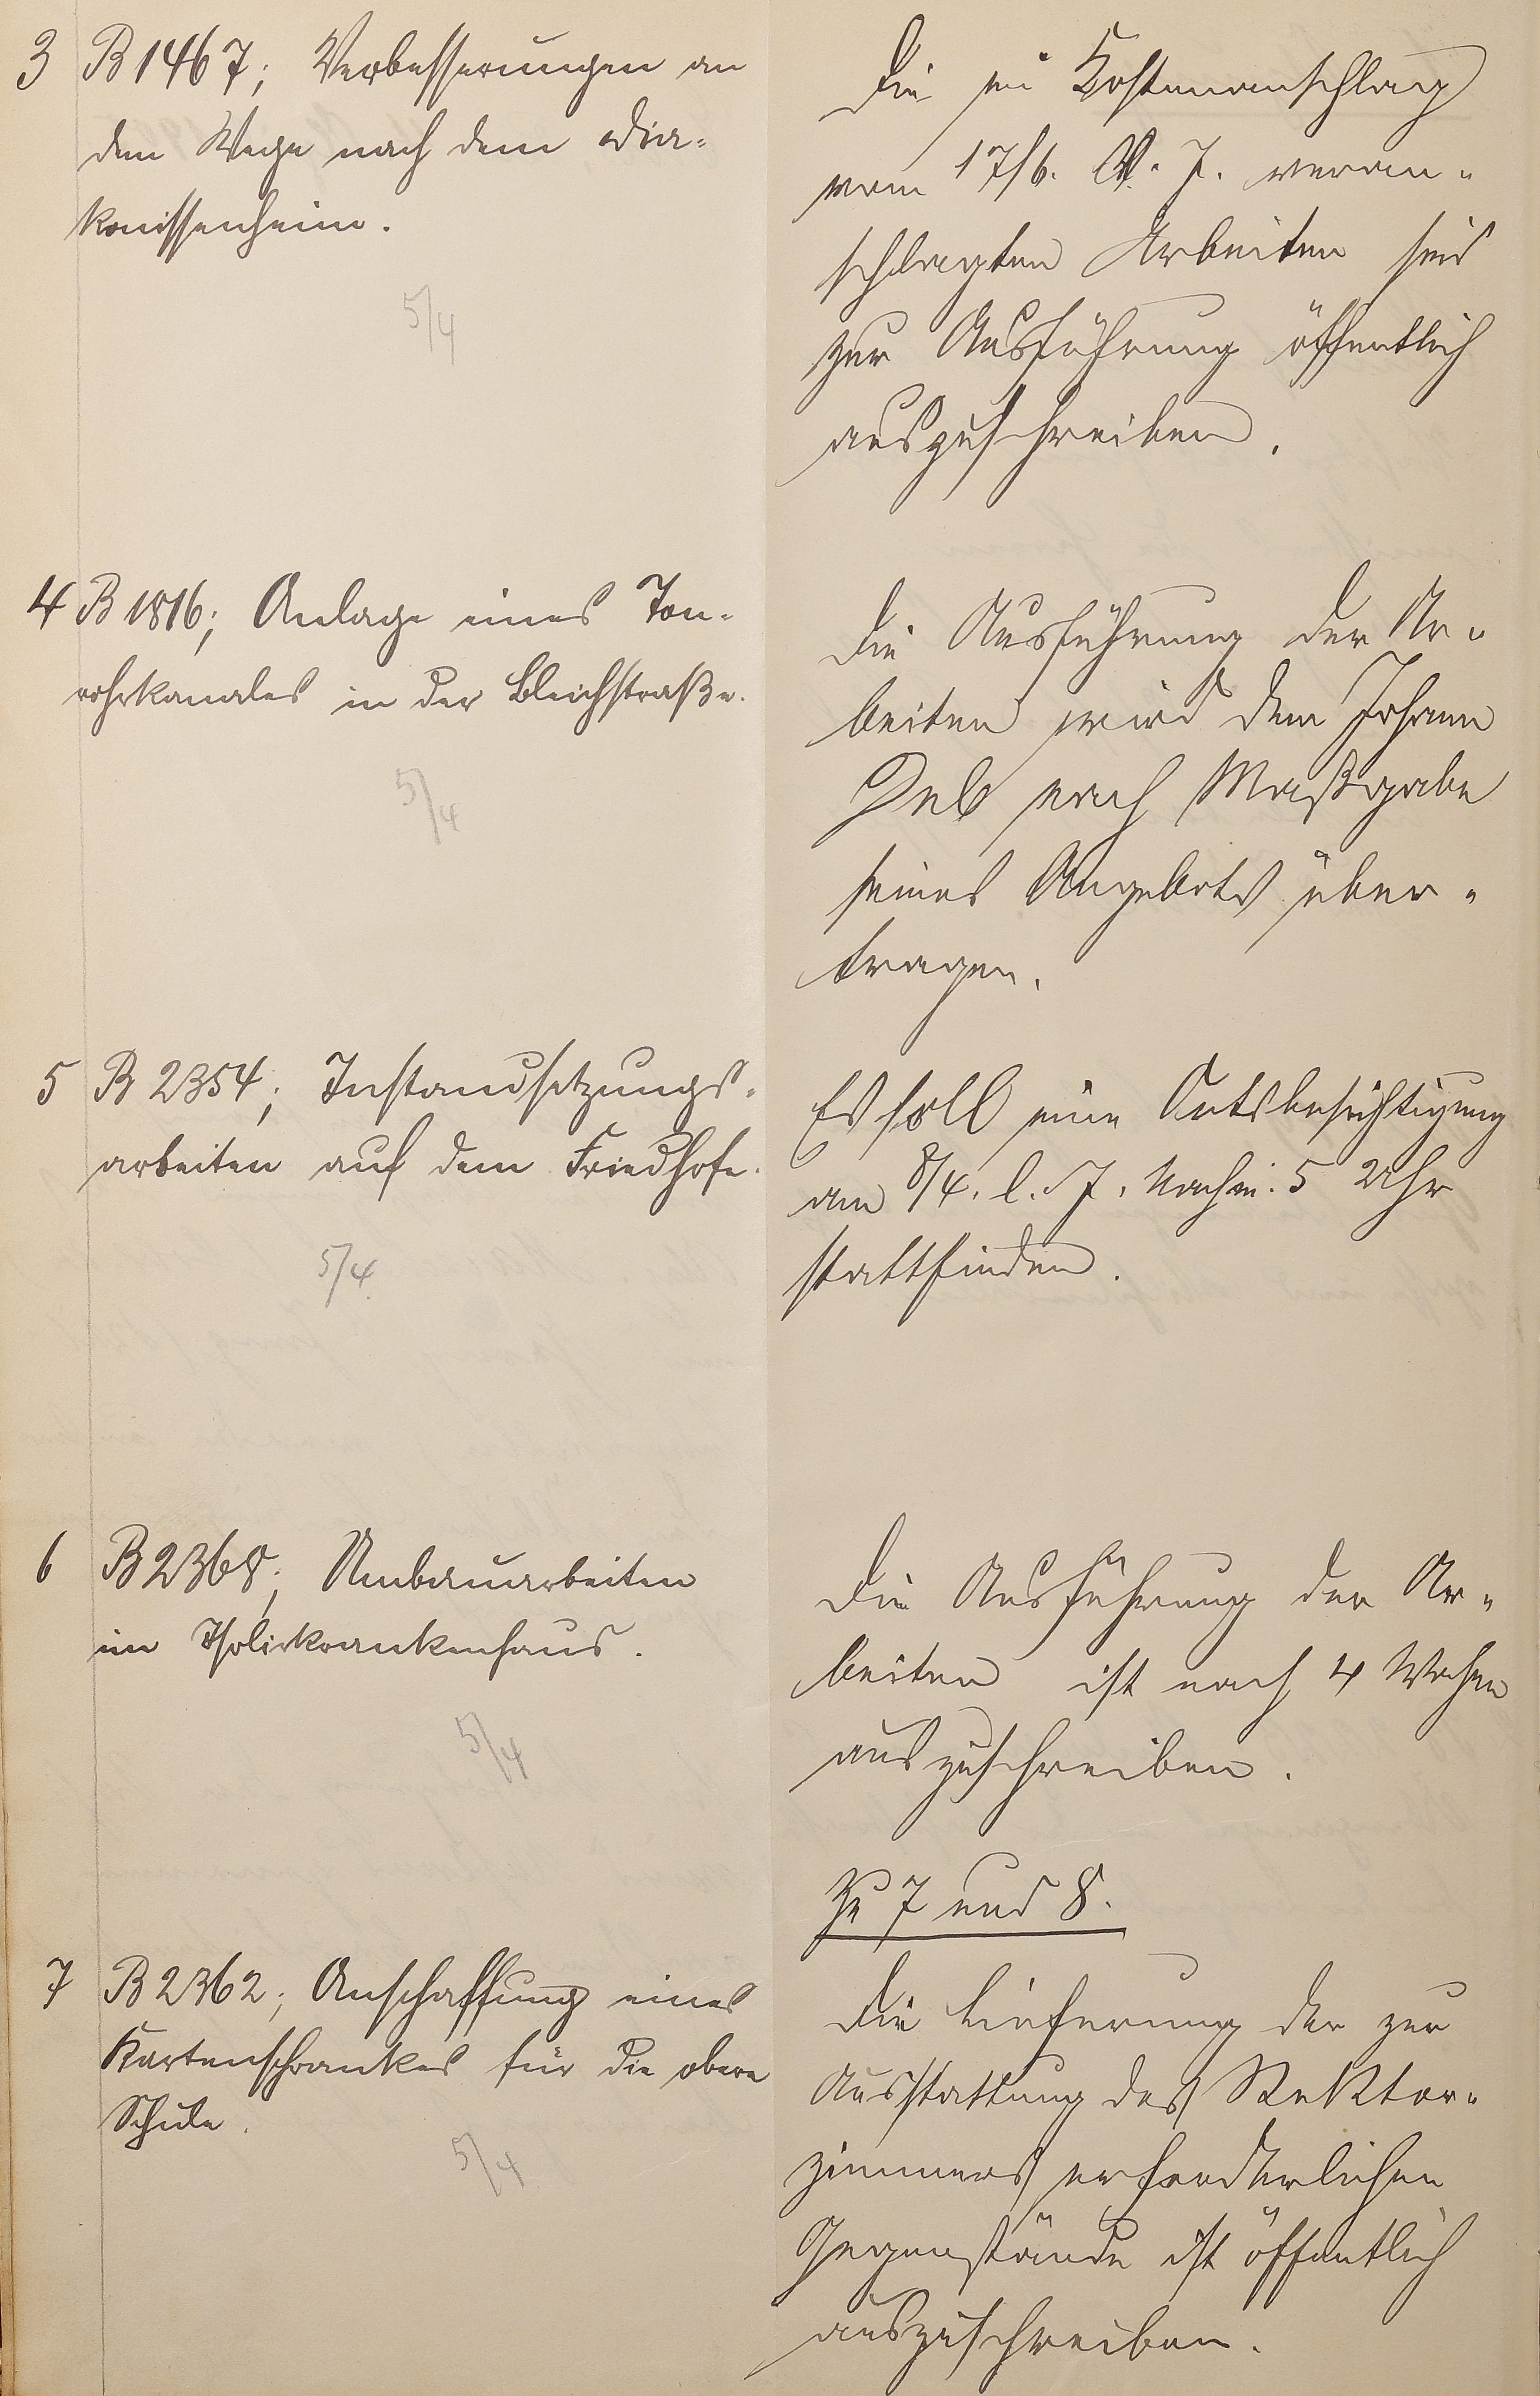 3 B 1467; Verbesserungen an
dem Wege nach dem Dia-
konissenheim.
5/4
Die im Kostenanschlag
vom 17/6. v. J. veran-
schlagten Arbeiten sind
zur Ausführung öffentlich
auszuschreiben.
4 B 1816; Anlage eines Ton-
rohrkanales in der Bleichstraße.
5/4
Die Ausführung der Ar-
beiten wird dem Johann
nach Maßgabe
seines Angebots über-
tragen.
5 B 2354; Instandsetzungs-
arbeiten auf dem Friedhofe.
5/4.
Es soll eine Ortsbesichtigung
am 8/4. l. J. Nachm. 5 Uhr
stattfinden.
6 B 2368; Umbauarbeiten
im Isolierkrankenhaus.
5/4
Die Ausführung der Ar-
beiten ist nach 4 Wochen
auszuschreiben.
Zu 7 und 8.
7 B 2362; Anschaffung eines
Kartenschrankes für die obere
Schule.
5/4
Die Lieferung der zur
Ausstattung des Rektor-
zimmers erforderlichen
Gegenstände ist öffentlich
auszuschreiben.